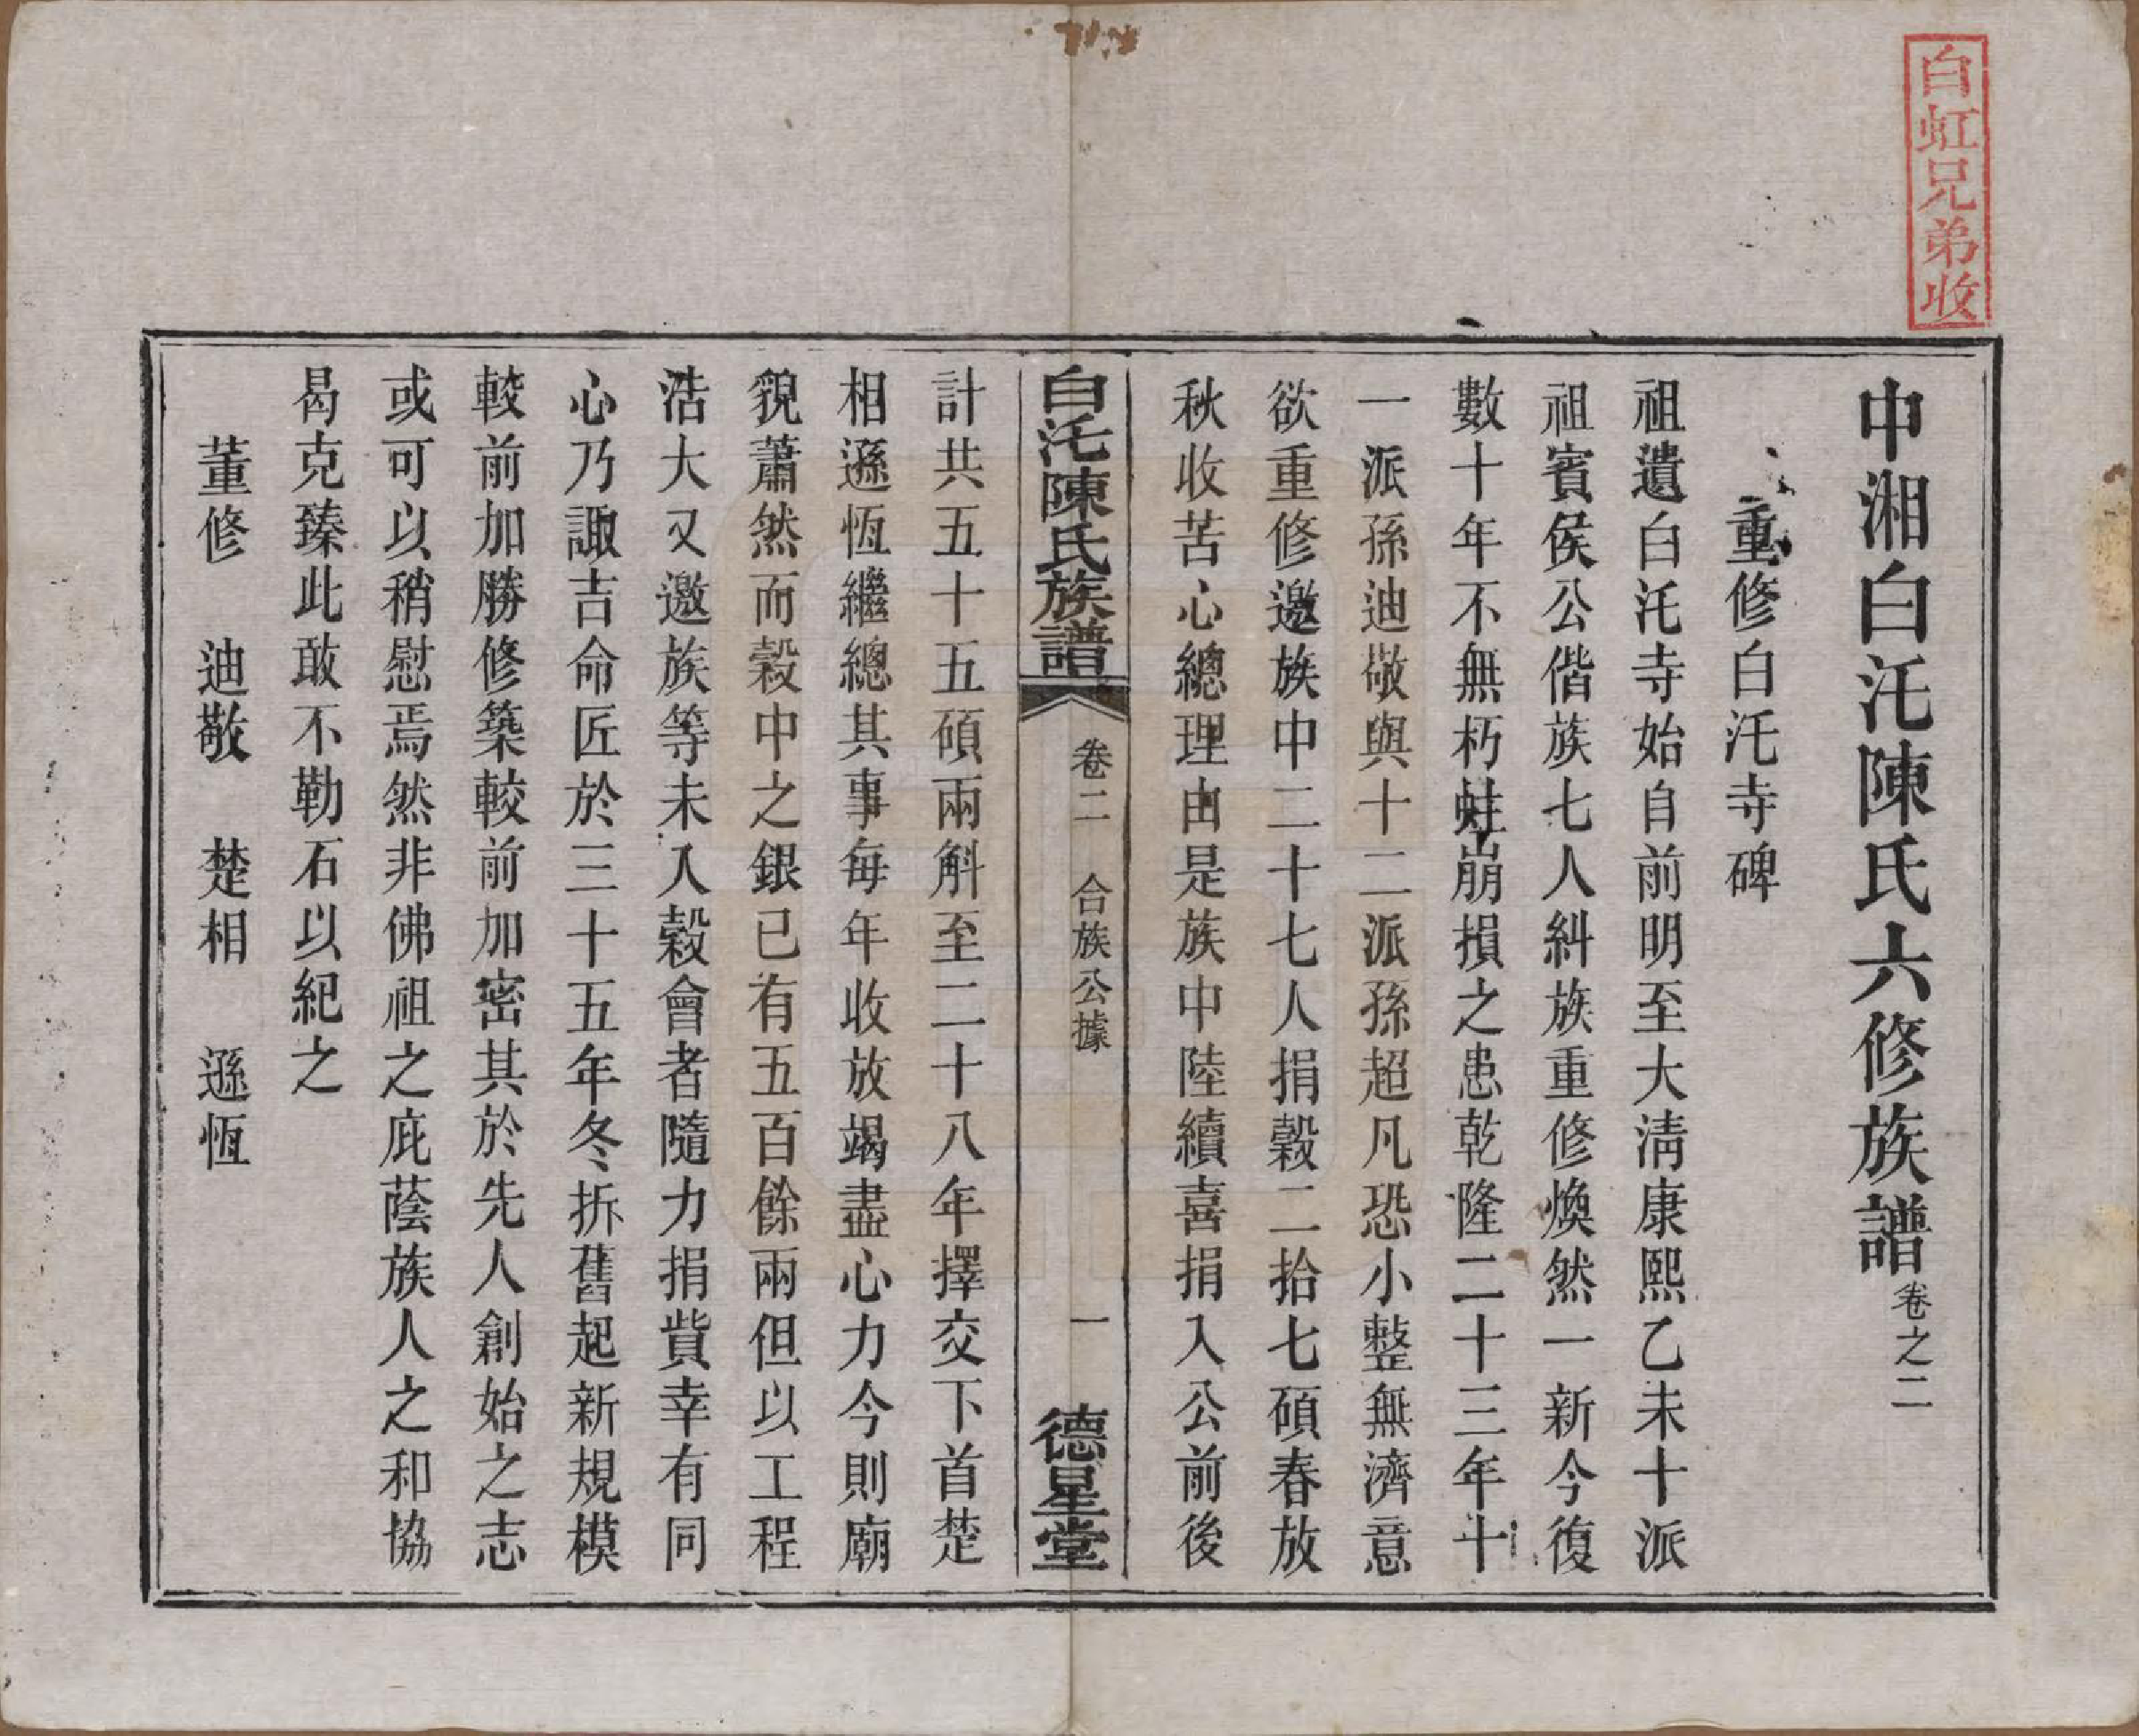 白虹兄弟收
中湘白汑陳氏六修族譜卷之二
重修白汑寺碑
祖遺白汑寺始自前明至大清康熙乙未十派
祖賓侯公偕族七人糾族重修煥然一新今復
數十年不無朽蛀崩損之患乾隆二十三年十
一派孫迪敬與十二派孫超凡恐小整無濟意
欲重修邀族中二十七人捐穀二拾七碩春放
秋收苦心總理由是族中陸續喜捐入公前後
白汑陳氏族譜 卷二 合族公據 一 德星堂
計共五十五碩兩斛至二十八年擇交下首楚
相遜恆繼總其事每年收放竭盡心力今則廟
貌蕭然而穀中之銀已有五百餘兩但以工程
浩大又邀族等未入穀會者隨力捐貲幸有同
心乃諏吉命匠於三十五年冬拆舊起新規模
較前加勝修築較前加密其於先人創始之志
或可以稍慰焉然非佛祖之庇蔭族人之和協
曷克臻此敢不勒石以紀之
董修 迪敬 楚相 遜恆